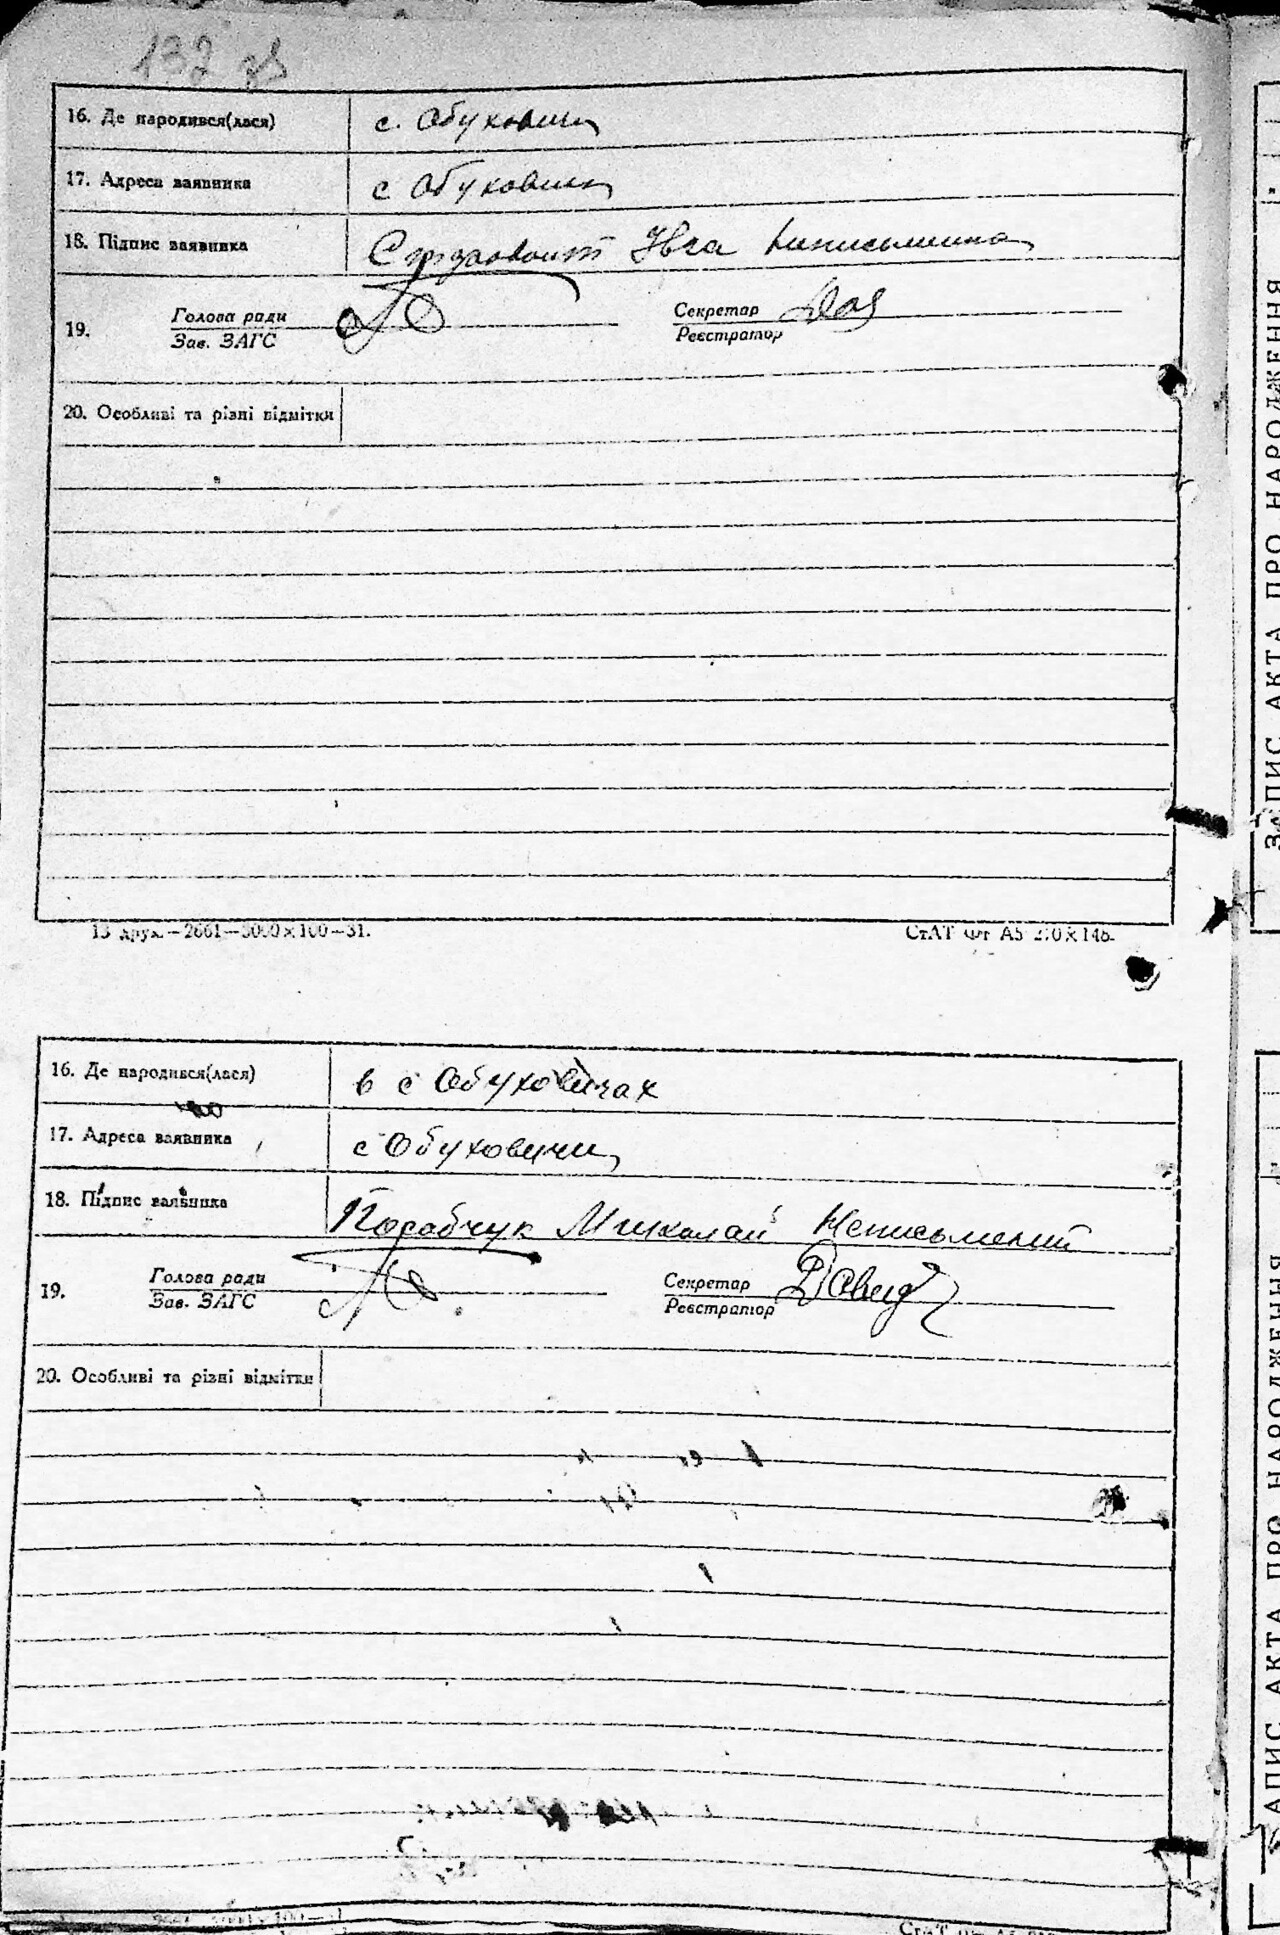 132 зв
16. Де народився(лася) с. Обуховичі
17. Адреса заявника с Обуховичі
18. Підпис заявника Ївга неписьменна
19. Голова ради Секретар
Зав. ЗАГС Реєстратор
20. Особливі та різні відмітки
13 друк.—2661—5000×100—31. СтАТ Фт А5 210×148.
16. Де народився(лася) в с Обуховичах
17. Адреса заявника с Обуховичи
18. Підпис заявника Корабчук Миколай Неписьмений
19. Голова ради Секретар Давид
Зав. ЗАГС Реєстратор
20. Особливі та різні відмітки
ЗАПИС АКТА ПРО НАРОДЖЕННЯ
ЗАПИС АКТА ПРО НАРОДЖЕННЯ